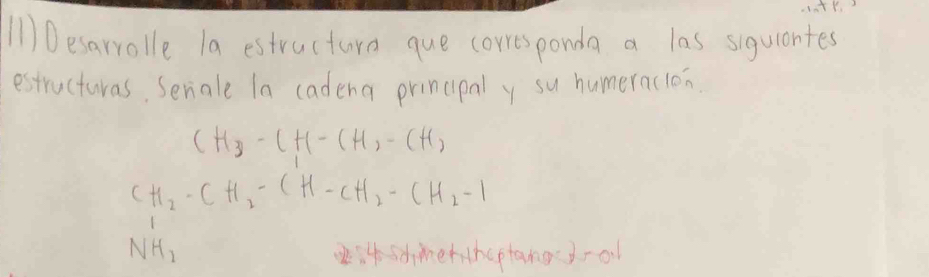 11) Desarrolle la estructura que corresponda a las siguientes
estructuras. Señale la cadena principal y su numeración.
CH3 - CH - CH2 - CH2
CH2 - CH2 - CH - CH2 - CH2 - I
NH2